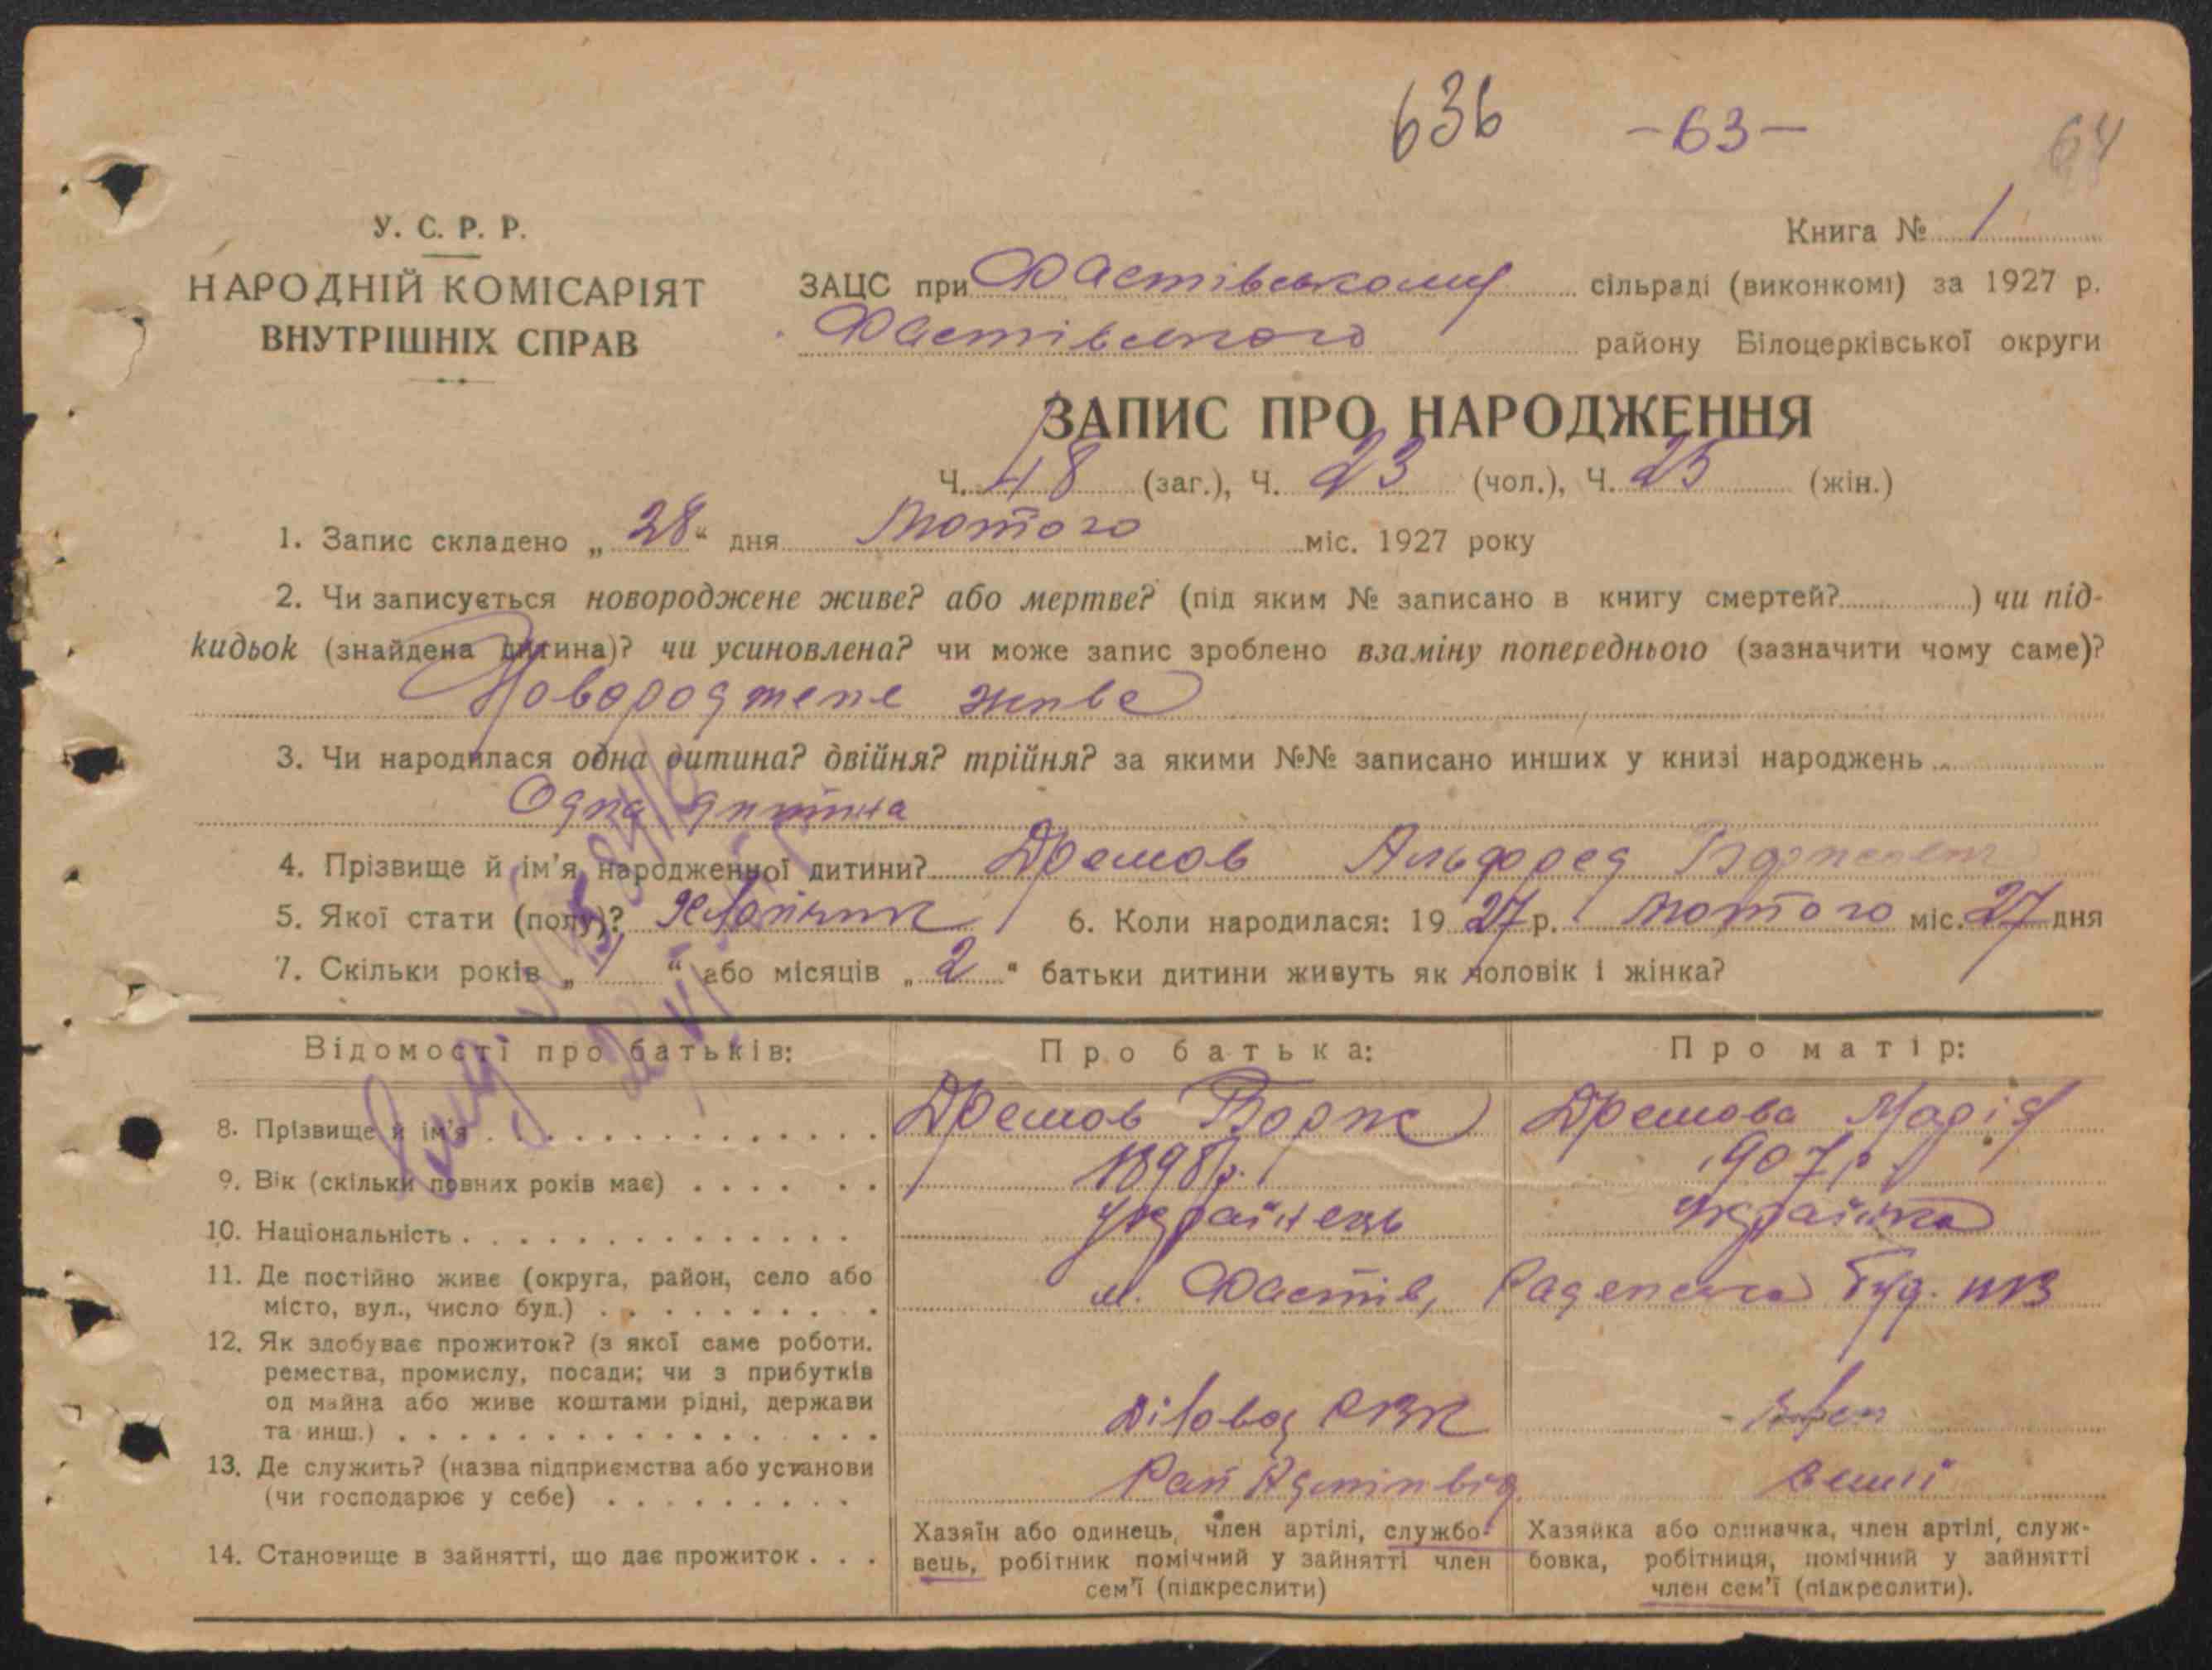 636 -63- 64
У. С. Р. Р.
НАРОДНІЙ КОМІСАРІЯТ
ВНУТРІШНІХ СПРАВ
Книга № 1
ЗАЦС при Фастівському сільраді (виконкомі) за 1927 р.
Фастівського району Білоцерківської округи
ЗАПИС ПРО НАРОДЖЕННЯ
Ч. 48 (заг.), Ч. 23 (чол.), Ч. 25 (жін.)
1. Запис складено „ 28 “ дня Лютого міс. 1927 року
2. Чи записується новороджене живе? або мертве? (під яким № записано в книгу смертей? ) чи під-
кидьок (знайдена дитина)? чи усиновлена? чи може запис зроблено взаміну попереднього (зазначити чому саме)?
Новороджене живе
3. Чи народилася одна дитина? двійня? трійня? за якими №№ записано инших у книзі народжень
Одна дитина
4. Прізвище й ім'я народженної дитини? Дремов Альфред
5. Якої стати (полу)? Хлопчик 6. Коли народилася: 19 27 р. Лютого міс. 27 дня
7. Скільки років „ “ або місяців „ 2 “ батьки дитини живуть як чоловік і жінка?
Відомості про батьків: Про батька: Про матір:
8. Прізвище й ім'я Дремов Борис Дремова Марія
9. Вік (скільки повних років має) 1898 р. 1907 р.
10. Національність Українець Українка
11. Де постійно живе (округа, район, село або
місто, вул., число буд.) м. Фастів, Радянська буд. №3
12. Як здобуває прожиток? (з якої саме роботи.
ремества, промислу, посади; чи з прибутків
од майна або живе коштами рідні, держави
та инш.) Діловод РВК член
13. Де служить? (назва підприємства або установи
(чи господарює у себе) Рай Адмінвід. семії
14. Становище в зайнятті, що дає прожиток
Хазяїн або одинець, член артілі, службо-
вець, робітник помічний у зайнятті член
сем'ї (підкреслити)
Хазяйка або одиначка, член артілі, служ-
бовка, робітниця, помічний у зайнятті
член сем'ї (підкреслити).